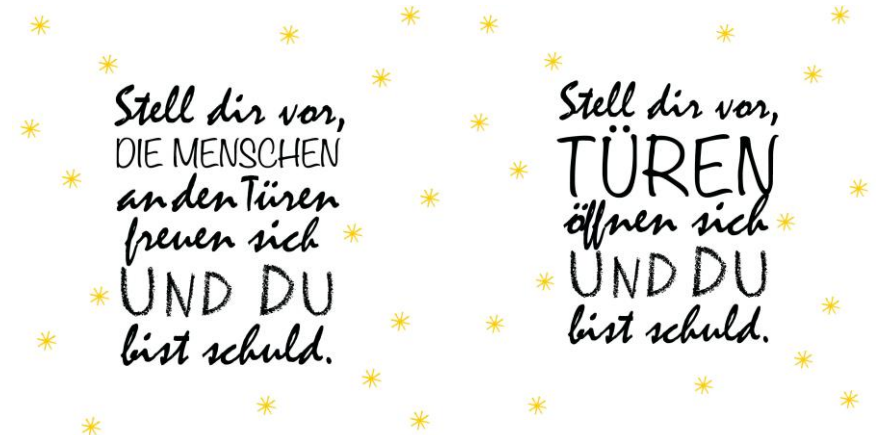 Stell dir vor,
DIE MENSCHEN
an den Türen
freuen sich
UND DU
bist schuld.
Stell dir vor,
TÜREN
öffnen sich
UND DU
bist schuld.